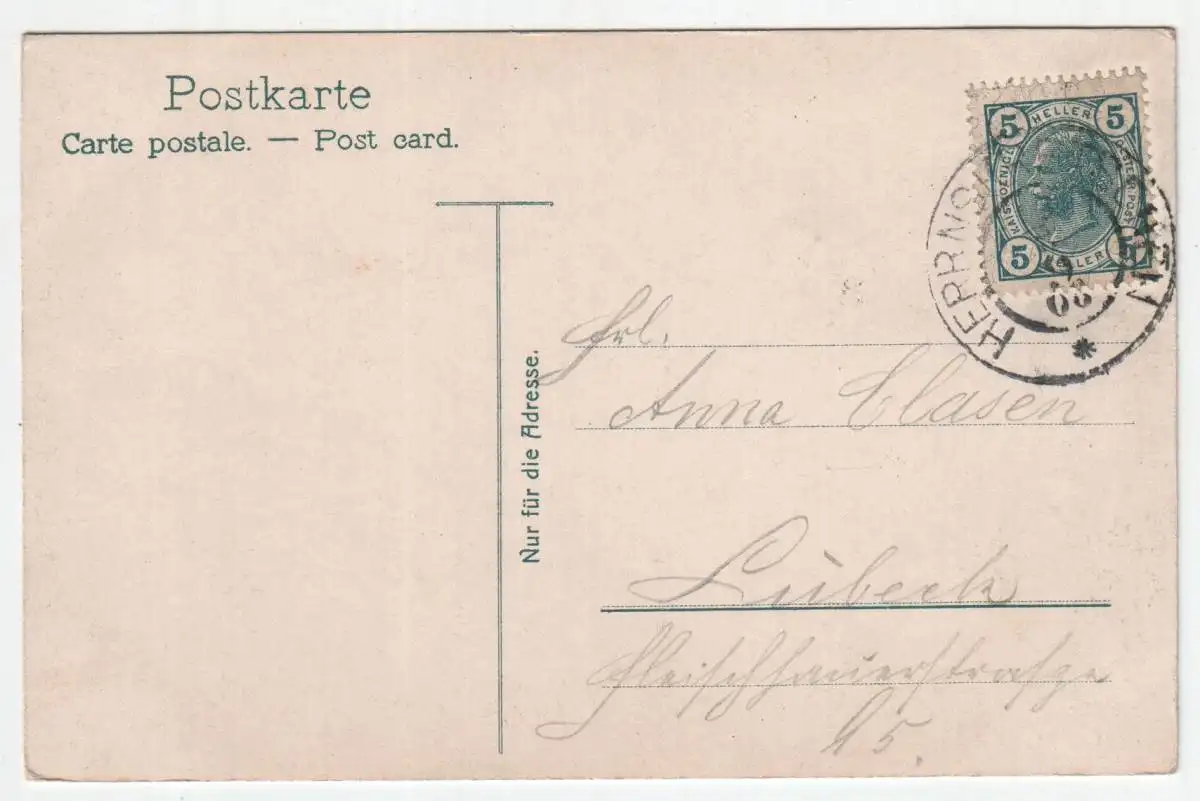 Postkarte
Carte postale. — Post card.
5 HELLER 5
KAIS. KOENIGL. OESTERR. POST
5 HELLER 5
08
Nur für die Adresse.
Frl.
Anna Clasen
Lübeck
Fleischhauerstraſze